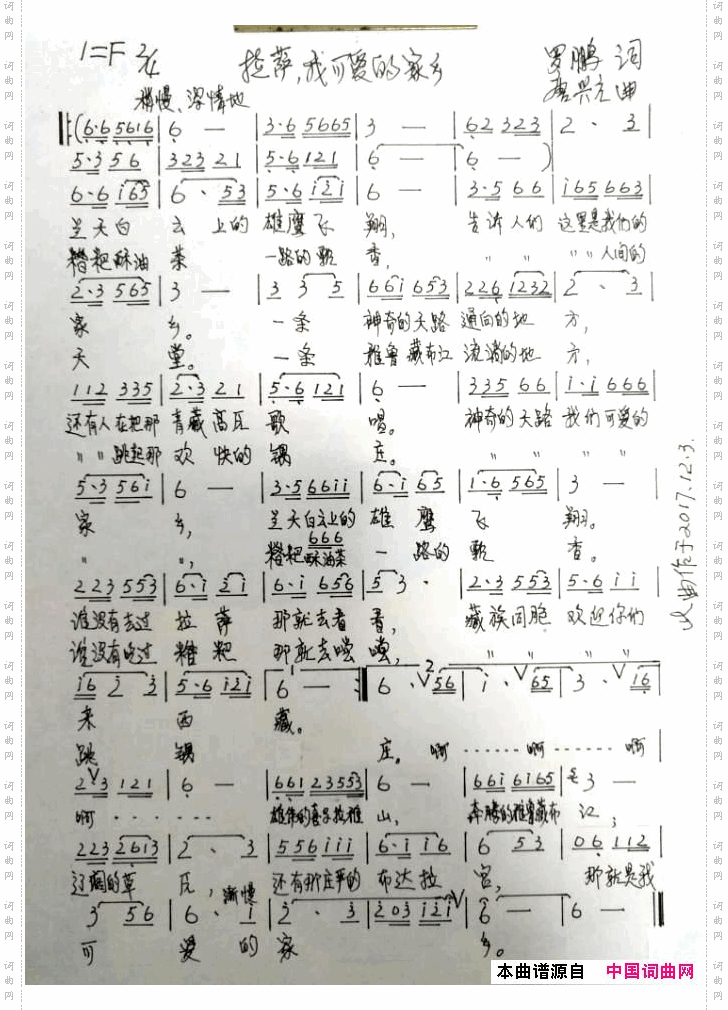 1=F 2/4 拉萨,我可爱的家乡 罗鹏 词
稍慢、深情地 曲
(6·6 5616 | 6 — | 3·6 5665 | 3 — | 62 323 | 2 · 3 |
5·3 56 | 323 21 | 5·6 121 | 6 — | 6 — )
6·6 i65 | 6 · 53 | 5·6 i2i | 6 — | 3·5 66 | i65 663 |
兰天白 云 上的 雄鹰飞 翔, 告诉人们 这里是我们的
糌粑酥油 茶 一路的飘 香, 〃 〃 〃〃人间的
2·3 565 | 3 — | 3 3 5 | 66i 653 | 226 1232 | 2 · 3 |
家 乡。 一条 神奇的天路 通向的地 方,
天 堂。 一条 雅鲁藏布江 流淌的地 方,
112 335 | 2·3 21 | 5·6 121 | 6 — | 335 66 | i·i 666 |
还有人在把那 青藏高瓦 歌 唱。 神奇的天路 我们可爱的
〃〃跳起那 欢 快的 锅 庄。 〃 〃 〃 〃
5·3 56i | 6 — | 3·566ii | 6·i 65 | 1·6 565 | 3 — |
家 乡, 兰天白云上的 雄 鹰 飞 翔。
666
〃 〃, 糌粑酥油茶 一 路的 飘 香。
223 553 | 6·i 2i | 6·i 656 | 5 3 · | 2·3 553 | 5·6 ii |
谁没有去过 拉 萨 那就去看 看, 藏族同胞 欢迎你们
谁没有吃过 糌 粑 那就去嚐 嚐, 〃 〃 〃 〃
i6 2 3 | 5·6 i2i | 6 — | 6 · 56 | i · 65 | 3 · 16 |
来 西 藏。
跳 锅 庄。 啊 ······ 啊 ······ 啊
2 3 121 | 6 — | 661 23553 | 6 — | 66i 6i65 | 3 — |
啊 · · · · · 山, 奔腾的雅鲁藏布 江;
223 2613 | 2 · 3 | 556 iii | 6·i i6 | 6 53 | 06 112 |
辽阔的草 瓦, 渐慢 还有那庄严的 布达拉 宫, 那就是我
3 56 | 6 · i | 2 · 3 | 203 i2i | 6 — | 6 — ‖
可 爱 的 家 乡。
词曲作于2017.12.3.
本曲谱源自 中国词曲网
词曲网